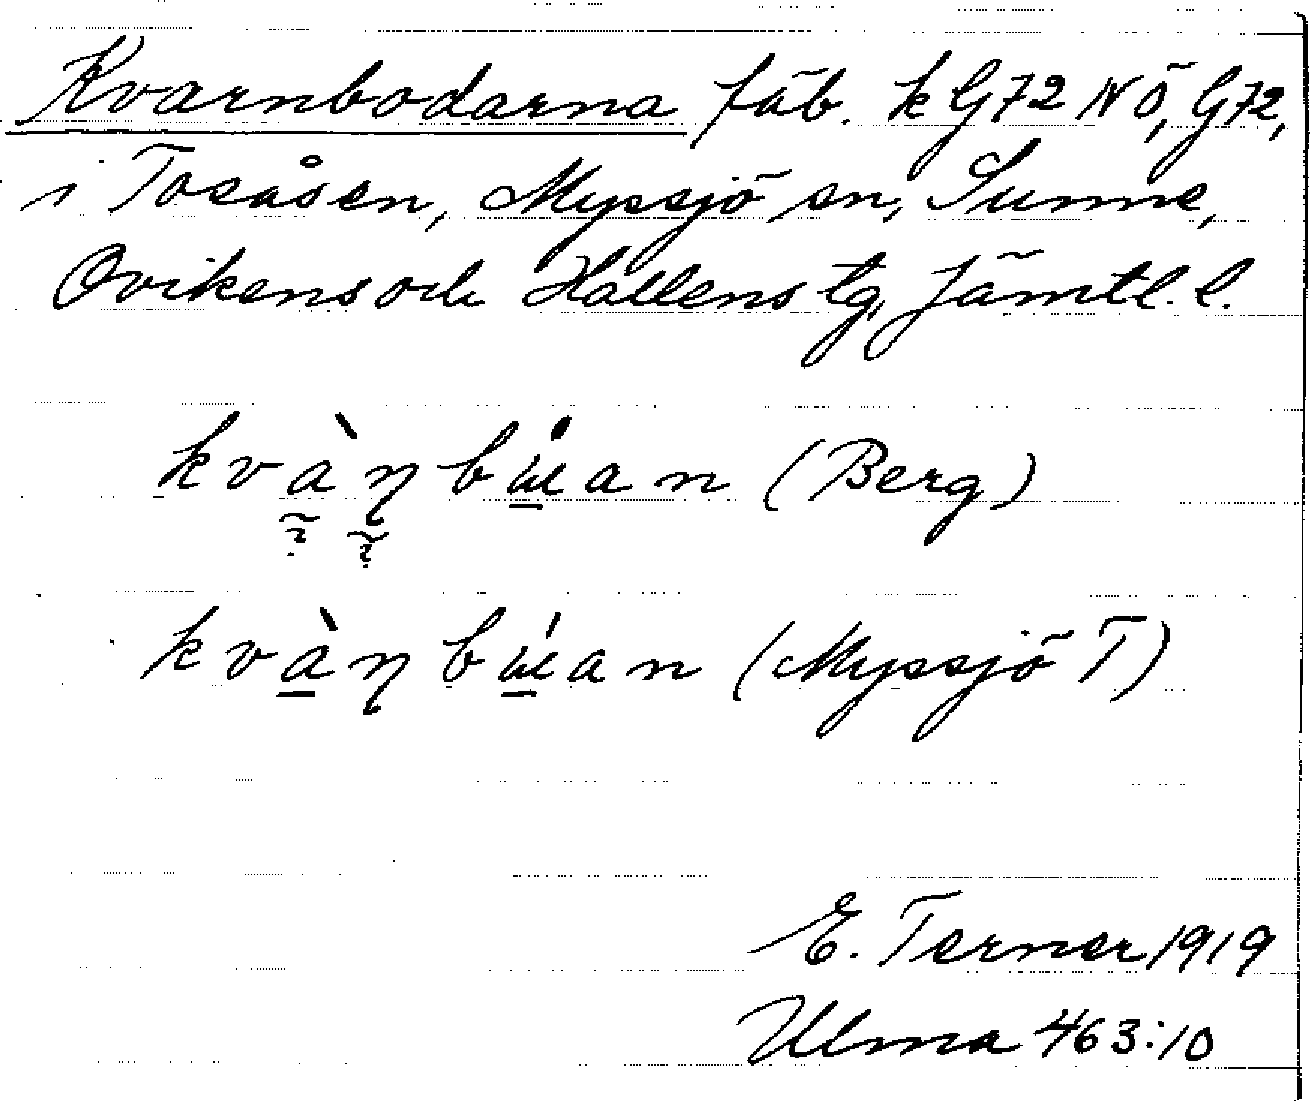 Kvarnbodarna fäb. k G72 NÖ, G72,
i Tosåsen, Myssjö sn, Sunne,
Ovikens och Hallens tg, Jämtl. l.
kvàɳbɯ́an (Berg)
kvàɳbɯ́an (Myssjö T)
E. Terner 1919
Ulma 463:10